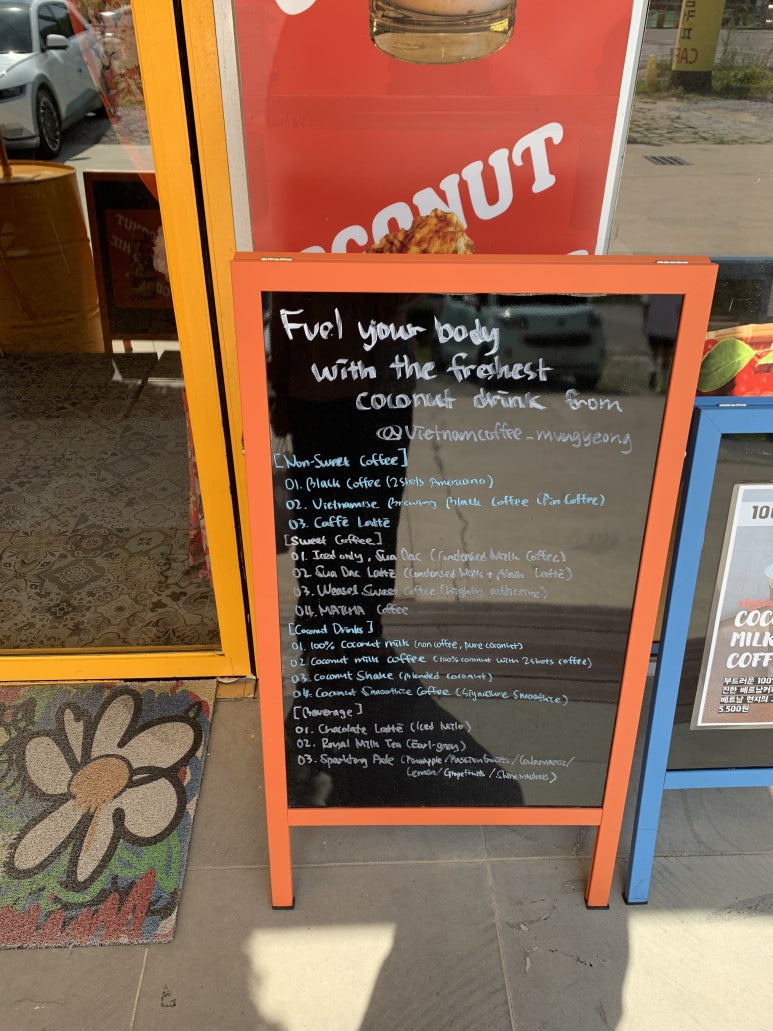 COCONUT
Fuel your body
with the freshest
coconut drink from
@Vietnamcoffee_mungyeong
[Non-Sweet Coffee]
01. Black Coffee (2shots Americano)
02. Vietnamise Brewing Black Coffee (Pin Coffee)
03. Caffē Lattē
[Sweet Coffee]
01. Iced only, Sua Dac (Condensed Milk Coffee)
02. Sua Dac Lattē (Condensed Milk + Black Lattē)
03. Weasel Sweet Coffee (highly addictive)
04. MATCHA Coffee
[Coconut Drinks]
01. 100% Coconut milk (non coffee, pure coconut)
02. Coconut milk coffee (100% coconut with 2shots coffee)
03. Coconut Shake (blended coconut)
04. Coconut Smoothie Coffee (Signature Smoothie)
[Beverage]
01. Chocolate Lattē (Iced Milo)
02. Royal Milk Tea (Earl-grey)
03. Sparkling Ade (Pineapple/Passionfruits/Calamansi/
Lemon/Grapefruits/Shinemuskets)
COCO
MILK
COFF
부드러운 100
진한 베트남커
베트남 현지의
5,500원